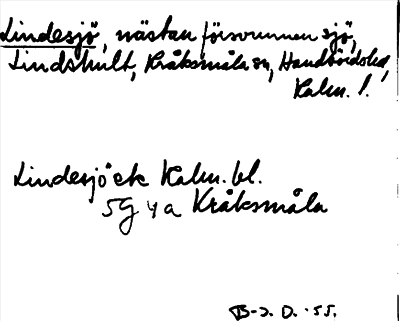 Lindesjö, nästan försvunnen sjö,
Lindshult, Kråksmåla sn, Handbördshd,
Kalm. l.
Lindesjö ek Kalm. bl.
5G 4a Kråksmåla
B-J. D. -55.